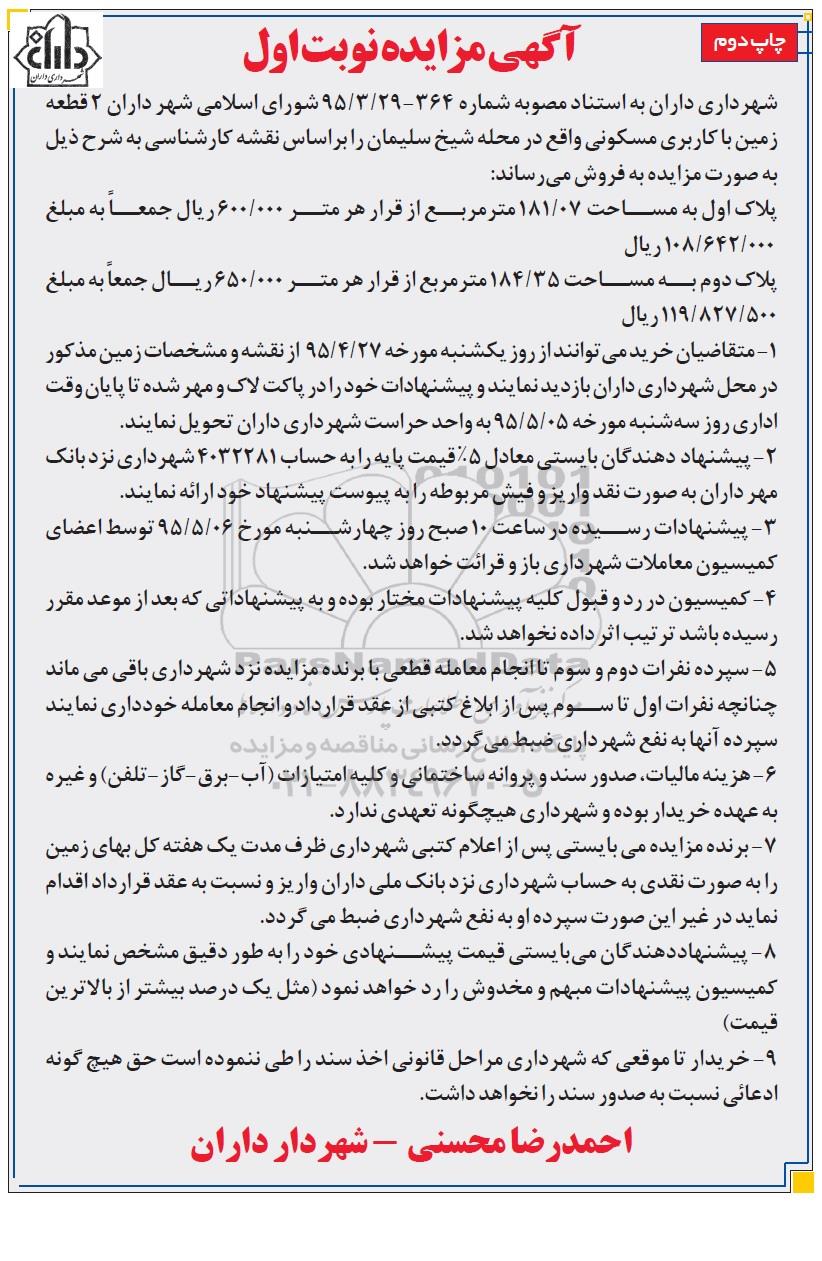 چاپ دوم
آگهی مزایده نوبت اول
داران
شهرداری داران
شهرداری داران به استناد مصوبه شماره ۳۶۴-۹۵/۳/۲۹ شورای اسلامی شهر داران ۲ قطعه
زمین با کاربری مسکونی واقع در محله شیخ سلیمان را براساس نقشه کارشناسی به شرح ذیل
به صورت مزایده به فروش می‌رساند:
پلاک اول به مساحت ۱۸۱/۰۷ مترمربع از قرار هر متر ۶۰۰/۰۰۰ ریال جمعاً به مبلغ
۱۰۸/۶۴۲/۰۰۰ ریال
پلاک دوم به مساحت ۱۸۴/۳۵ مترمربع از قرار هر متر ۶۵۰/۰۰۰ ریال جمعاً به مبلغ
۱۱۹/۸۲۷/۵۰۰ ریال
۱- متقاضیان خرید می‌توانند از روز یکشنبه مورخه ۹۵/۴/۲۷ از نقشه و مشخصات زمین مذکور
در محل شهرداری داران بازدید نمایند و پیشنهادات خود را در پاکت لاک و مهر شده تا پایان وقت
اداری روز سه‌شنبه مورخه ۹۵/۵/۰۵ به واحد حراست شهرداری داران تحویل نمایند.
۲- پیشنهاد دهندگان بایستی معادل ۵٪ قیمت پایه را به حساب ۴۰۳۲۲۸۱ شهرداری نزد بانک
مهر داران به صورت نقد واریز و فیش مربوطه را به پیوست پیشنهاد خود ارائه نمایند.
۳- پیشنهادات رسیده در ساعت ۱۰ صبح روز چهارشنبه مورخ ۹۵/۵/۰۶ توسط اعضای
کمیسیون معاملات شهرداری باز و قرائت خواهد شد.
۴- کمیسیون در رد و قبول کلیه پیشنهادات مختار بوده و به پیشنهاداتی که بعد از موعد مقرر
رسیده باشد ترتیب اثر داده نخواهد شد.
ParsNamadData
۵- سپرده نفرات دوم و سوم تا انجام معامله قطعی با برنده مزایده نزد شهرداری باقی می ماند
چنانچه نفرات اول تا سوم پس از ابلاغ کتبی از عقد قرارداد و انجام معامله خودداری نمایند
سپرده آنها به نفع شهرداری ضبط می‌گردد.
پایگاه اطلاع رسانی مناقصه و مزایده
۶- هزینه مالیات، صدور سند و پروانه ساختمانی و کلیه امتیازات (آب-برق-گاز-تلفن) و غیره
۰۲۱-۸۸۳۴۹۶۷۰-۵
به عهده خریدار بوده و شهرداری هیچگونه تعهدی ندارد.
۷- برنده مزایده می بایستی پس از اعلام کتبی شهرداری ظرف مدت یک هفته کل بهای زمین
را به صورت نقدی به حساب شهرداری نزد بانک ملی داران واریز و نسبت به عقد قرارداد اقدام
نماید در غیر این صورت سپرده او به نفع شهرداری ضبط می گردد.
۸- پیشنهاددهندگان می‌بایستی قیمت پیشنهادی خود را به طور دقیق مشخص نمایند و
کمیسیون پیشنهادات مبهم و مخدوش را رد خواهد نمود (مثل یک درصد بیشتر از بالاترین
قیمت)
۹- خریدار تا موقعی که شهرداری مراحل قانونی اخذ سند را طی ننموده است حق هیچ گونه
ادعائی نسبت به صدور سند را نخواهد داشت.
احمدرضا محسنی - شهردار داران